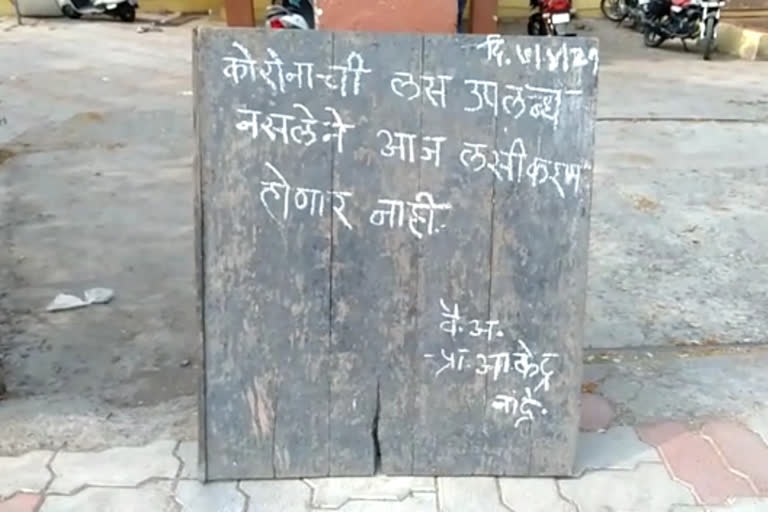 दि. ७/४/२१
कोरोनाची लस उपलब्ध
नसलेने आज लसीकरण
होणार नाही.
वै.अ.
प्रा.आ.केंद्र
नांद्रे.